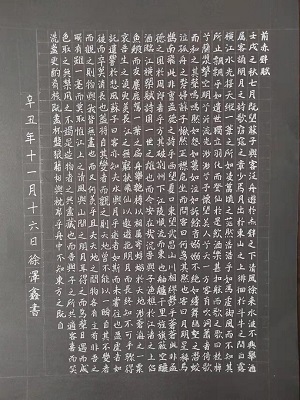 前赤壁賦
壬戌之秋七月既望蘇子與客泛舟遊於赤壁之下清風徐來水波不興舉酒
屬客誦明月之詩歌窈窕之章少焉月出於東山之上徘徊於斗牛之間白露
橫江水光接天縱一葦之所如凌萬頃之茫然浩浩乎如馮虛御風而不知其
所止飄飄乎如遺世獨立羽化而登仙於是飲酒樂甚扣舷而歌之歌曰桂棹
兮蘭槳擊空明兮泝流光渺渺兮予懷望美人兮天一方客有吹洞簫者倚歌
而和之其聲嗚嗚然如怨如慕如泣如訴餘音嫋嫋不絕如縷舞幽壑之潛蛟
泣孤舟之嫠婦蘇子愀然正襟危坐而問客曰何為其然也客曰月明星稀烏
鵲南飛此非曹孟德之詩乎西望夏口東望武昌山川相繆鬱乎蒼蒼此非孟
德之困於周郎者乎方其破荊州下江陵順流而東也舳艫千里旌旗蔽空釃
酒臨江橫槊賦詩固一世之雄也而今安在哉況吾與子漁樵於江渚之上侶
魚蝦而友麋鹿駕一葉之扁舟舉匏樽以相屬寄蜉蝣於天地渺滄海之一粟
哀吾生之須臾羨長江之無窮挾飛仙以遨遊抱明月而長終知不可乎驟得
託遺響於悲風蘇子曰客亦知夫水與月乎逝者如斯而未嘗往也盈虛者如
彼而卒莫消長也蓋將自其變者而觀之則天地曾不能以一瞬自其不變者
而觀之則物與我皆無盡也而又何羨乎且夫天地之間物各有主苟非吾之所
有雖一毫而莫取惟江上之清風與山間之明月耳得之而為聲目遇之而成
色取之無禁用之不竭是造物者之無盡藏也而吾與子之所共適客喜而笑
洗盞更酌肴核既盡杯盤狼藉相與枕藉乎舟中不知東方之既白
辛丑年十一月十六日徐澤鑫書